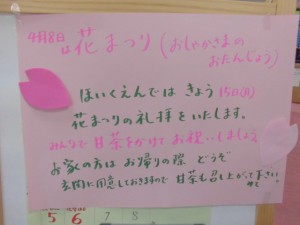 4月8日
は花まつり(おしゃかさまの
おたんじょう)
ほいくえんでは きょう 15日(月)
花まつりの礼拝をいたします。
みんなで甘茶をかけてお祝いしましょう。
お家の方は お帰りの際 どうぞ
玄関に用意しておきますので 甘茶も召し上がって下さい
5 6 7 8